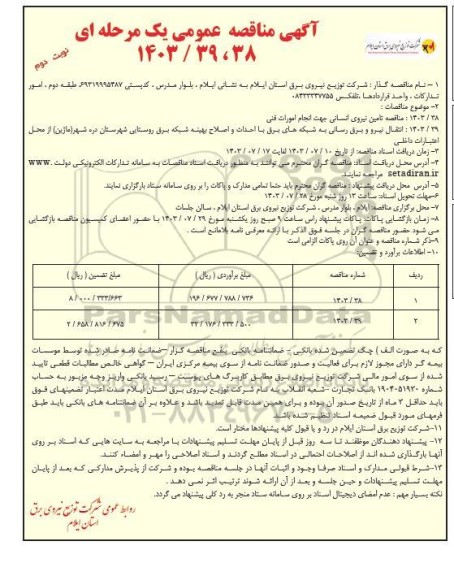 آگهی مناقصه عمومی یک مرحله ای
۱۴۰۳ / ۳۹ ، ۳۸
نوبت دوم
شرکت توزیع نیروی برق استان ایلام
۱ – نام مناقصه گذار : شرکت توزیع نیروی برق استان ایلام به نشانی ایلام ، بلوار مدرس ، کدپستی ۶۹۳۱۹۹۹۵۳۸۷، طبقه دوم ، امور
تدارکات ، واحد قراردادها ،تلفکس ۰۸۴۳۳۳۴۷۷۵۵
۲– موضوع مناقصات :
۳۸ / ۱۴۰۳ : مناقصه تامین نیروی انسانی جهت انجام امورات فنی
۳۹ / ۱۴۰۳ : انتقال نیرو و برق رسانی به شبکه های برق با احداث و اصلاح بهینه شبکه برق روستایی شهرستان دره شهر(ماژین) از محل
اعتبارات داخلی
۳– زمان دریافت اسناد مناقصه: از تاریخ ۱۰ / ۰۷ / ۱۴۰۳ لغایت ۱۷ / ۰۷ / ۱۴۰۳
۴– آدرس محل دریافت اسناد: مناقصه گران محترم می توانند به منظور دریافت اسناد مناقصات به سامانه تدارکات الکترونیکی دولت www.
setadiran.ir مراجعه نمایند.
۵– آدرس محل دریافت پیشنهاد : مناقصه گران محترم باید حتما تمامی مدارک و پاکات را بر روی سامانه ستاد بارگزاری نمایند.
۶–مهلت تحویل اسناد: ساعت ۱۳ روز شنبه مورخ ۲۸ / ۰۷ / ۱۴۰۳
۷– محل برگزاری مناقصه: ایلام ، بلوار مدرس ، شرکت توزیع نیروی برق استان ایلام ، سالن جلسات
۸– زمان بازگشایی پاکات: پاکات پیشنهاد راس ساعت ۹ صبح روز یکشنبه مورخ ۲۹ / ۰۷ / ۱۴۰۳ با حضور اعضای کمیسیون مناقصه بازگشایی
می شود حضور مناقصه گران در جلسه فوق الذکر با ارائه معرفی نامه بلامانع است .
۹–ذکر شماره مناقصه و عنوان آن روی پاکات الزامی است
۱۰– اطلاعات برآورد و تضمین:
ردیف شماره مناقصه مبلغ برآوردی ( ریال ) مبلغ تضمین ( ریال )
۱ ۳۸ / ۱۴۰۳ ۷۳۶ / ۷۸۸ / ۶۷۷ / ۱۹۶ ۳۳۳/۶۶۳ / ۰۰۰ / ۸
۲ ۳۹ / ۱۴۰۳ ۵۰۰ / ۲۳۲ / ۱۷۶ / ۳۳ ۶۷۵ / ۸۱۶ / ۶۵۸ / ۲
ParsNamadData
۰۲۱-۸۸۳۴۹۶۷۰
که به صورت الف ) چک تضمین شده بانکی – ضمانتنامه بانکی بنفع مناقصه گزار –ضمانت نامه صادر شده توسط موسسات
بیمه گر دارای مجوز لازم برای فعالیت و صدور ضمانت نامه از سوی بیمه مرکزی ایران – گواهی خالص مطالبات قطعی تایید
شده از سوی امور مالی شرکت توزیع نیروی برق مطابق کاربرگ های پیوست – رسید بانکی واریز وجه مزبور به حساب
شماره ۱۹۰۴۰۵۱۹۲۰ بانک تجارت –شعبه انقلاب به نام شرکت توزیع نیروی برق استان ایلام مدت اعتبار تضمینهای فوق
باید حداقل ۳ ماه از تاریخ صدور آن بوده و برای همین مدت قابل تمدید باشد و علاوه بر آن ضمانتنامه های بانکی باید طبق
فرمهای مورد قبول ضمیمه اسناد تنظیم شده باشد.
۱۱–شرکت توزیع برق استان ایلام در رد و یا قبول کلیه پیشنهادها مختار است.
۱۲– پیشنهاد دهندگان موظفند تا سه روز قبل از پایان مهلت تسلیم پیشنهادات با مراجعه به سایت هایی که اسناد بر روی
آنها بارگذاری شده اند از اصلاحات احتمالی در اسناد مطلع گردند و اسناد اصلاحی را مهر و امضاء کنند.
۱۳–شرط قبولی مدارک و اسناد صرفا وجود و اثبات آنها در جلسه مناقصه بوده و شرکت از پذیرش مدارکی که بعد از پایان
مهلت تسلیم پیشنهادات و حین جلسه و بعد از آن ارائه شوند ترتیب اثر نمی دهد .
نکته بسیار مهم : عدم امضای دیجیتال اسناد بر روی سامانه ستاد منجر به رد کلی پیشنهاد می گردد.
روابط عمومی شرکت توزیع نیروی برق
استان ایلام